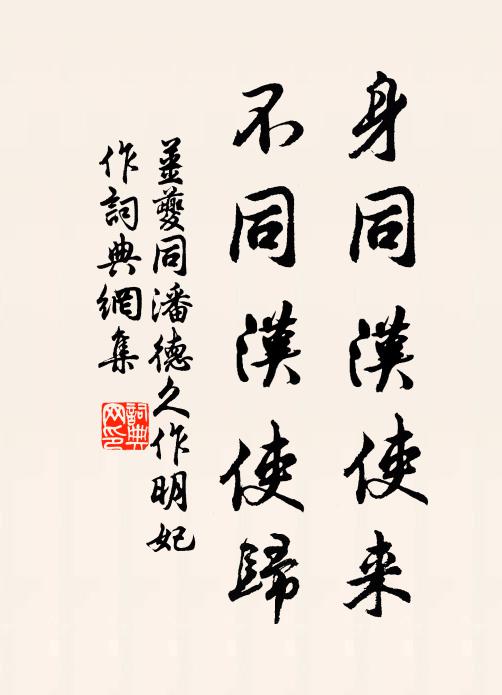 身同漢使来
不同漢使歸
薑夔同潘德久作明妃
作詞典網集
詞典网印